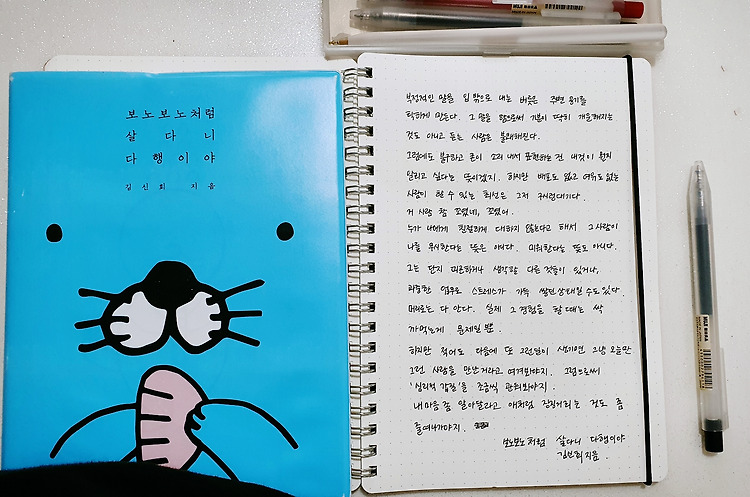 보노보노처럼
살 다 니
다 행 이 야
김 신 회 지 음
부정적인 말을 입 밖으로 내는 버릇은 주변 공기를
탁하게 만든다. 그 말을 함으로써 기분이 딱히 개운해지는
것도 아니고 듣는 사람은 불쾌해진다.
그럼에도 불구하고 굳이 소리 내서 표현하는 건 내 것이 뭔지
알리고 싶다는 뜻이겠지. 하지만 배포도 없고 여유도 없는
사람이 할 수 있는 최선은 그저 구시렁대기다.
거 사람 참 쪼였네, 쪼였어.
누가 나에게 친절하게 대하지 않는다고 해서 그 사람이
나를 무시한다는 뜻은 아니다. 미워한다는 뜻도 아니다.
그는 단지 피곤하거나 생각할 다른 것들이 있거나,
과중한 업무로 스트레스가 가득 쌓인 상태일 수도 있다.
머리로는 다 안다. 실제 그 경험을 할 때는 싹
까먹는게 문제일 뿐.
하지만 적어도 다음에 또 그런 일이 생기면 그냥 오늘만
그런 사람을 만난 거라고 여겨봐야지. 그럼으로써
'심리적 갑질'을 조금씩 관둬봐야지.
내 마음 좀 알아달라고 애처럼 징징거리는 것도 좀
줄여나가야지.
보노보노처럼 살다니 다행이야
김신회 지음.
MUJI